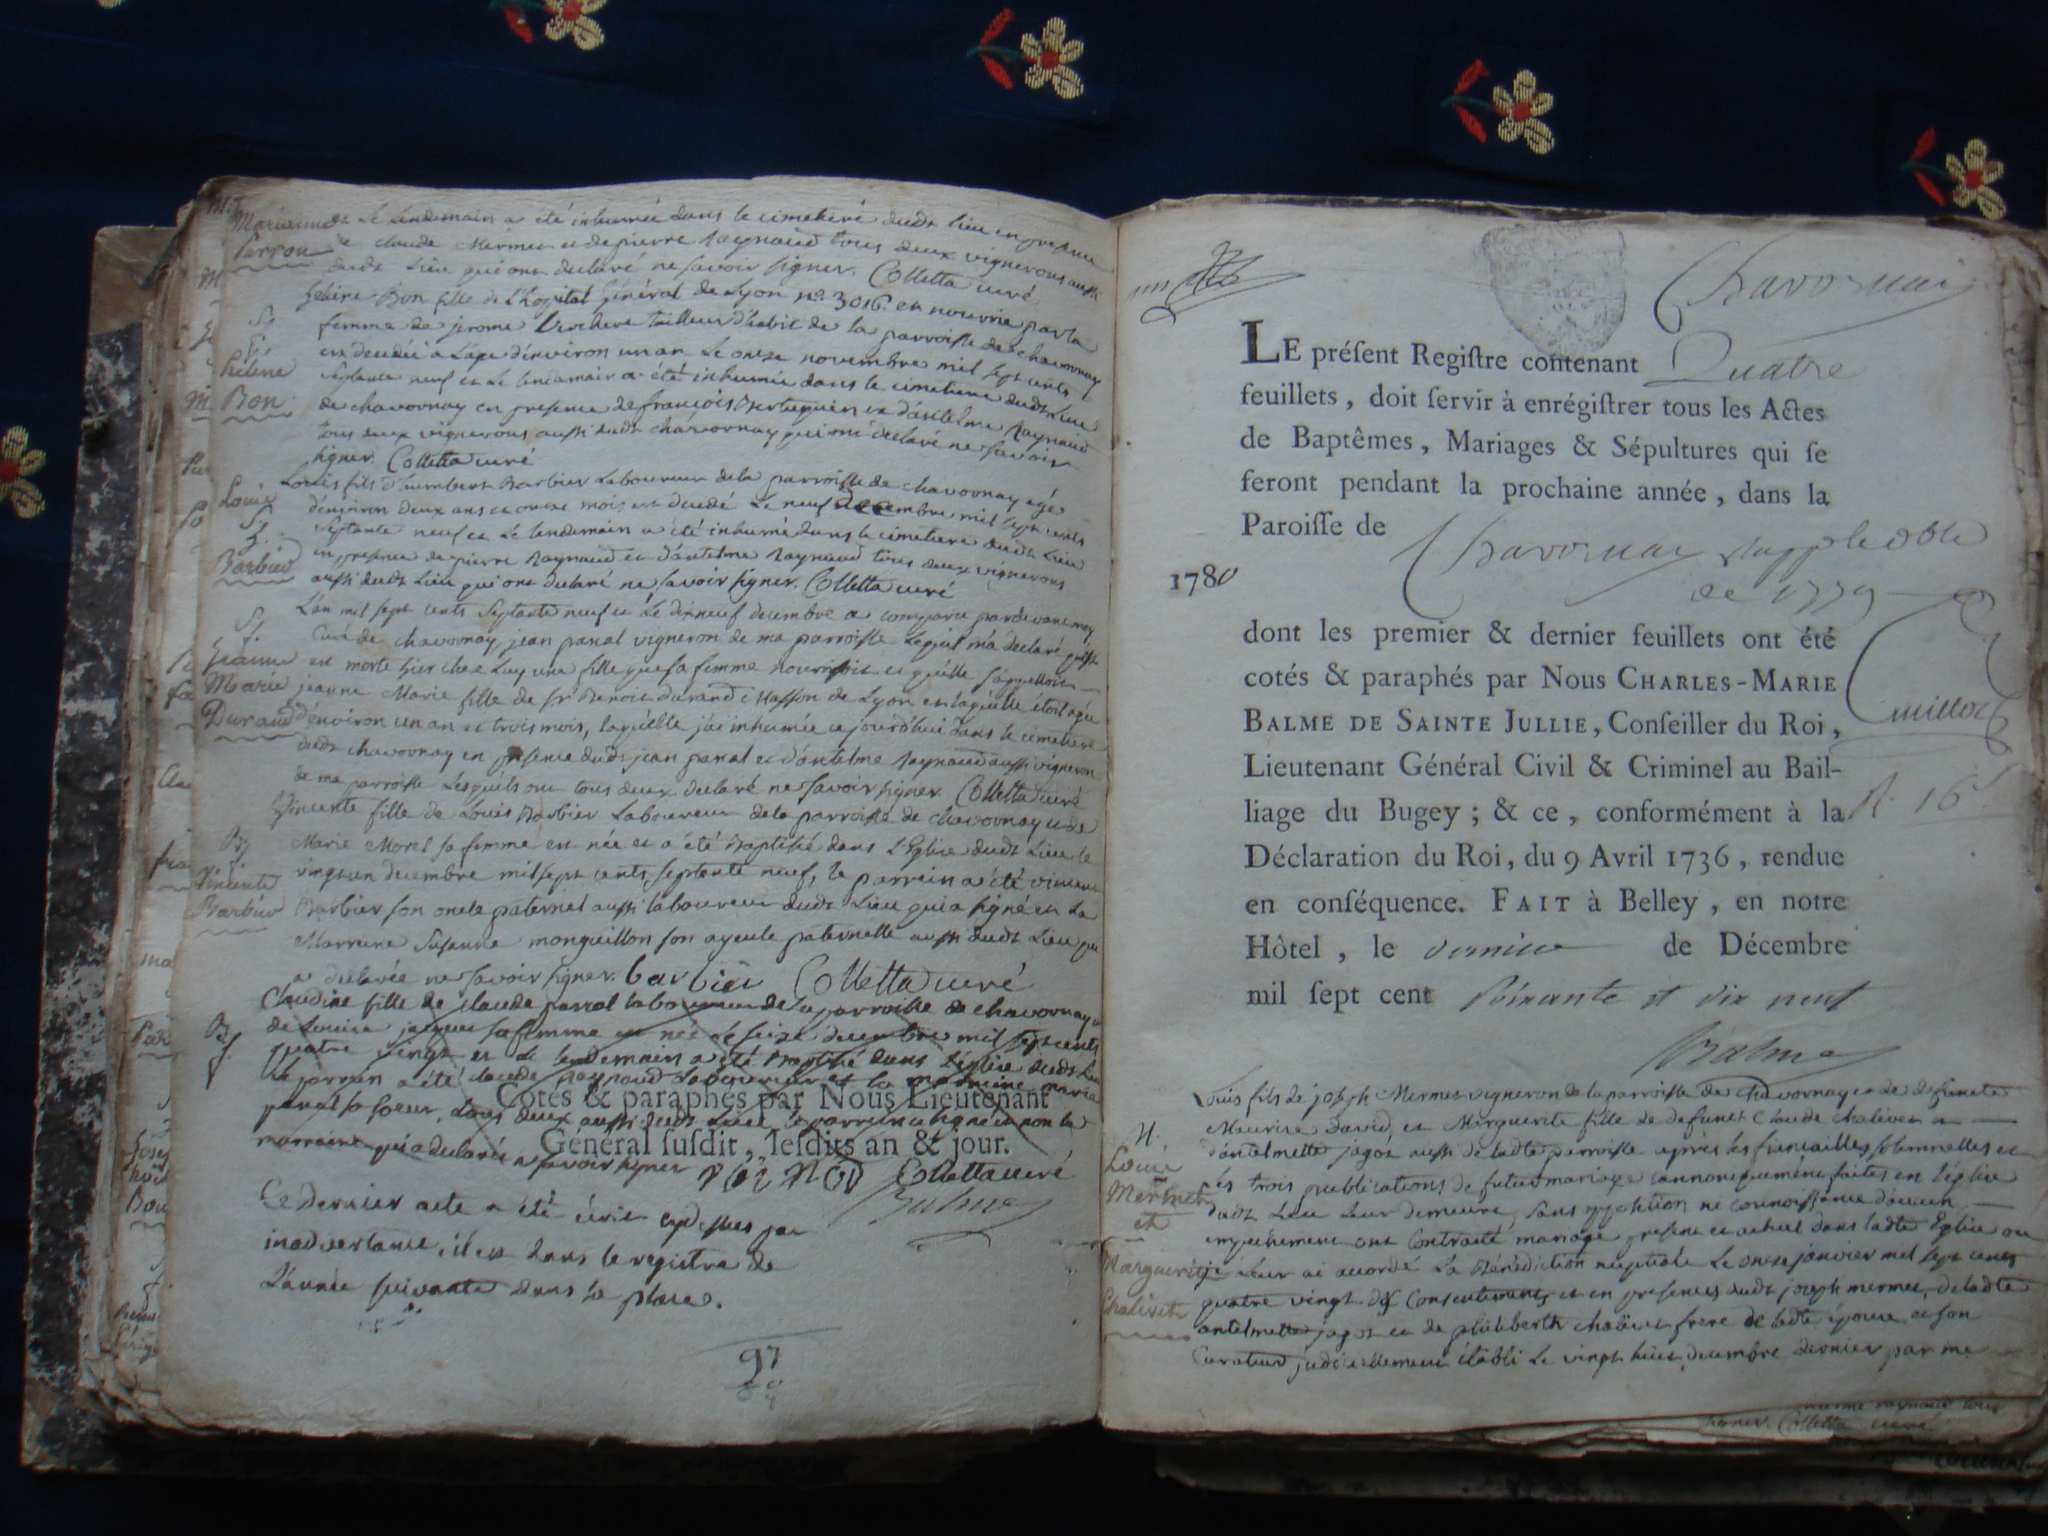 Marianne
Perrou
et Le Lendemain a été inhumée dans le cimetière dudt lieu en presence
de Claude Mermet et de pierre Raynaud tous deux vignerons aussi
dudt Lieu qui ont declaré ne savoir signer. Colletta curé
Sp.
f.
heléne
Bon
heléne Bon fille de L'hopital Général de Lyon no. 3016. en nourrie par la
femme de jerome tailleur d'habit de la parroisse de chavornay
est decedée a L'age d'environ un an Le onze novembre mil sept cents
septante neuf et Le lendemain a été inhumée dans le cimetiere dudt Lieu
de chavornay en presence de francois Berthuguin et d'antelme Raynaud
tous deux vignerons aussi dudt chavornay qui ont declaré ne savoir
signer. Colletta curé
Louis
Sp.
Barbier
Louis fils d'humbert Barbier Laboureur de la parroisse de chavornay agé
d'environ deux ans et onze mois est decedé Le neuf decembre mil sept cents
septante neuf et Le lendemain a été inhumé dans le cimetiere dudt Lieu
en presence de pierre Raynaud et d'antelme Raynaud tous deux vignerons
aussi dudt Lieu qui ont declaré ne savoir signer. Colletta curé
Sp.
f.
jeanne
Marie
Durand
L'an mil sept cents septante neuf et Le dixneuf decembre a comparu pardevant moy
Curé de chavornay, jean panal vigneron de ma parroisse Lequel m'a declaré qu'il
est morte hier chez Luy une fille que sa femme nourrissoit et qu'elle s'appelloit
jeanne Marie fille de Sr. Benoit durand Masson de Lyon et laquelle étoit agée
d'environ un an et trois mois, laquelle j'ai inhumée ce jourd'huy dans le cimetiere
dudt chavornay en presence dudt jean panal et d'antelme Raynaud aussi vigneron
de ma parroisse Lesquels ont tous deux declaré ne savoir signer. Colletta curé
B.
f.
Vincente
Barbier
Vincente fille de Louis Barbier Laboureur de la parroisse de chavornay et de
Marie Morel sa femme est née et a été Baptisée dans L'Eglise dudt Lieu le
vingt un decembre mil sept cents septante neuf, le parrein a été vincent
Barbier son oncle paternel aussi laboureur dudt Lieu qui a signé et La
Marreine Susanne monguillon son ayeule paternelle aussi dudt Lieu qui
a declarée ne savoir signer. barbier Colletta curé
B.
f.
Claudine fille de claude parral laboureur de la parroisse de chavornay et
de Louise jacques sa femme est née Le seize decembre mil sept cents
quatre vingt et Le lendemain a été Baptisé dans L'église dudt Lieu
Le parrein a été claude Raynaud Laboureur et La marreine maria
panal sa soeur, tous deux aussi dudt Lieu le parrein a signé et non la
marraine qui a declaré ne savoir signer Colletta curé
Cotés & paraphés par Nous Lieutenant
Général susdit, lesdits an & jour.
Balme
Ce dernier acte a été écrit cy dessus par
inadvertance, il est dans le registre de
L'année suivante dans sa place.
97
Chavornai
LE présent Registre contenant Quatre
feuillets, doit servir à enrégistrer tous les Actes
de Baptêmes, Mariages & Sépultures qui se
feront pendant la prochaine année, dans la
Paroisse de Chavornay
1780
de 1779
dont les premier & dernier feuillets ont été
cotés & paraphés par Nous CHARLES-MARIE
BALME DE SAINTE JULLIE, Conseiller du Roi,
Lieutenant Général Civil & Criminel au Bail-
liage du Bugey ; & ce, conformément à la
Déclaration du Roi, du 9 Avril 1736, rendue
en conséquence. FAIT à Belley, en notre
Hôtel, le dernier de Décembre
mil sept cent soixante et dix neuf
Balme
M.
Louis
Mermet
et
Marguerite
Chalivet
Louis fils de joseph Mermet vigneron de la parroisse de chavornay et de defuncte
Maurise David, et Marguerite fille de defunct Claude Chalivet et
d'antelmette jagot aussi de ladte parroisse après les fiançailles solemnelles et
les trois publications de futur mariage cannoniquement faites en l'église
dudt Lieu Leur demeure, sans opposition ne connoissance d'aucun
empechement ont Contracté mariage present et actuel dans ladte Eglise ou
je Leur ai accordé La Bénédiction nuptiale Le onze janvier mil sept cents
quatre vingt du Consentement et en presence dudt joseph mermet, de ladte
antelmette jagot et de philiberth chalivet frere de ladte épouse et son
Curateur judiciellement établi Le vingt huit decembre dernier par me
Colletta curé